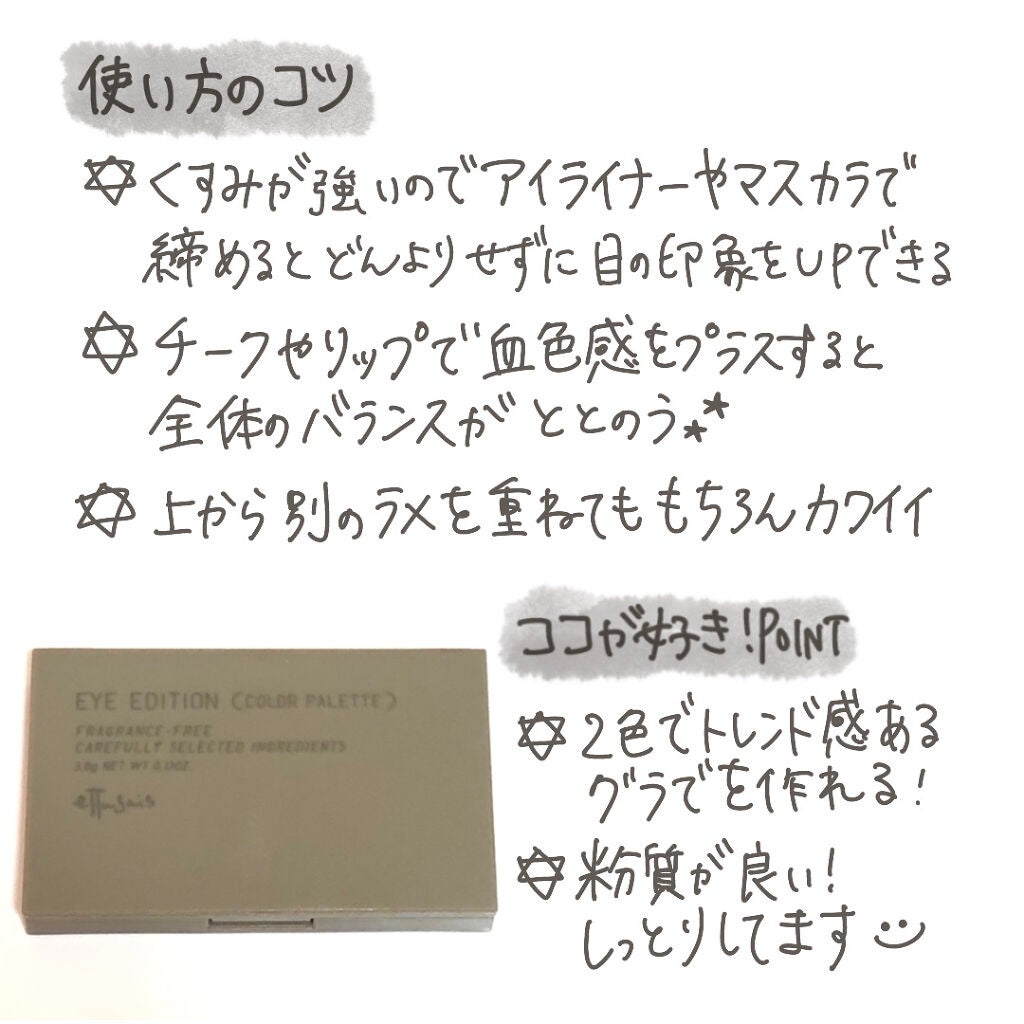 使い方のコツ
✡くすみが強いのでアイライナーやマスカラで
締めるとどんよりせずに目の印象をUPできる
✡チークやリップで血色感をプラスすると
全体のバランスがととのう
✡上から別のラメを重ねてももちろんカワイイ
ココが好き!POINT
✡2色でトレンド感ある
グラデを作れる!
✡粉質が良い!
しっとりしてます
EYE EDITION (COLOR PALETTE)
FRAGRANCE-FREE
CAREFULLY SELECTED INGREDIENTS
3.8g NET WT. 0.13OZ.
ettusais